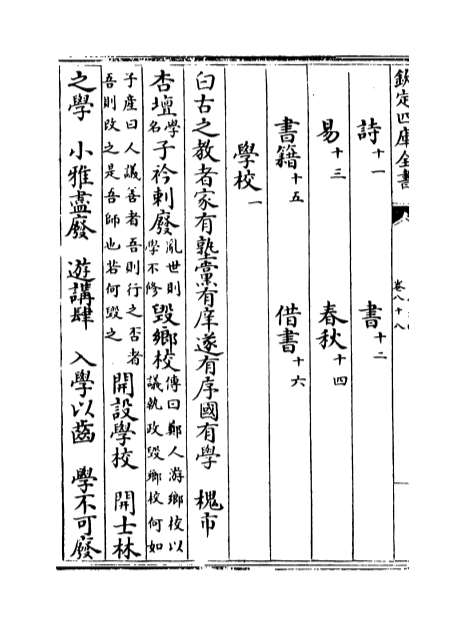 欽定四庫全書
卷八十八
詩十一 書十二
易十三 春秋十四
書籍十五 借書十六
學校一
白古之教者家有塾黨有庠遂有序國有學 槐市
杏壇學名子衿刺廢亂世則學不修毀鄉校傳曰鄭人游鄉校以議執政毀鄉校何如
子產曰人議善者吾則行之否者吾則改之是吾師也若何毀之 開設學校 開士林
之學 小雅盡廢 遊講肆 入學以齒 學不可廢